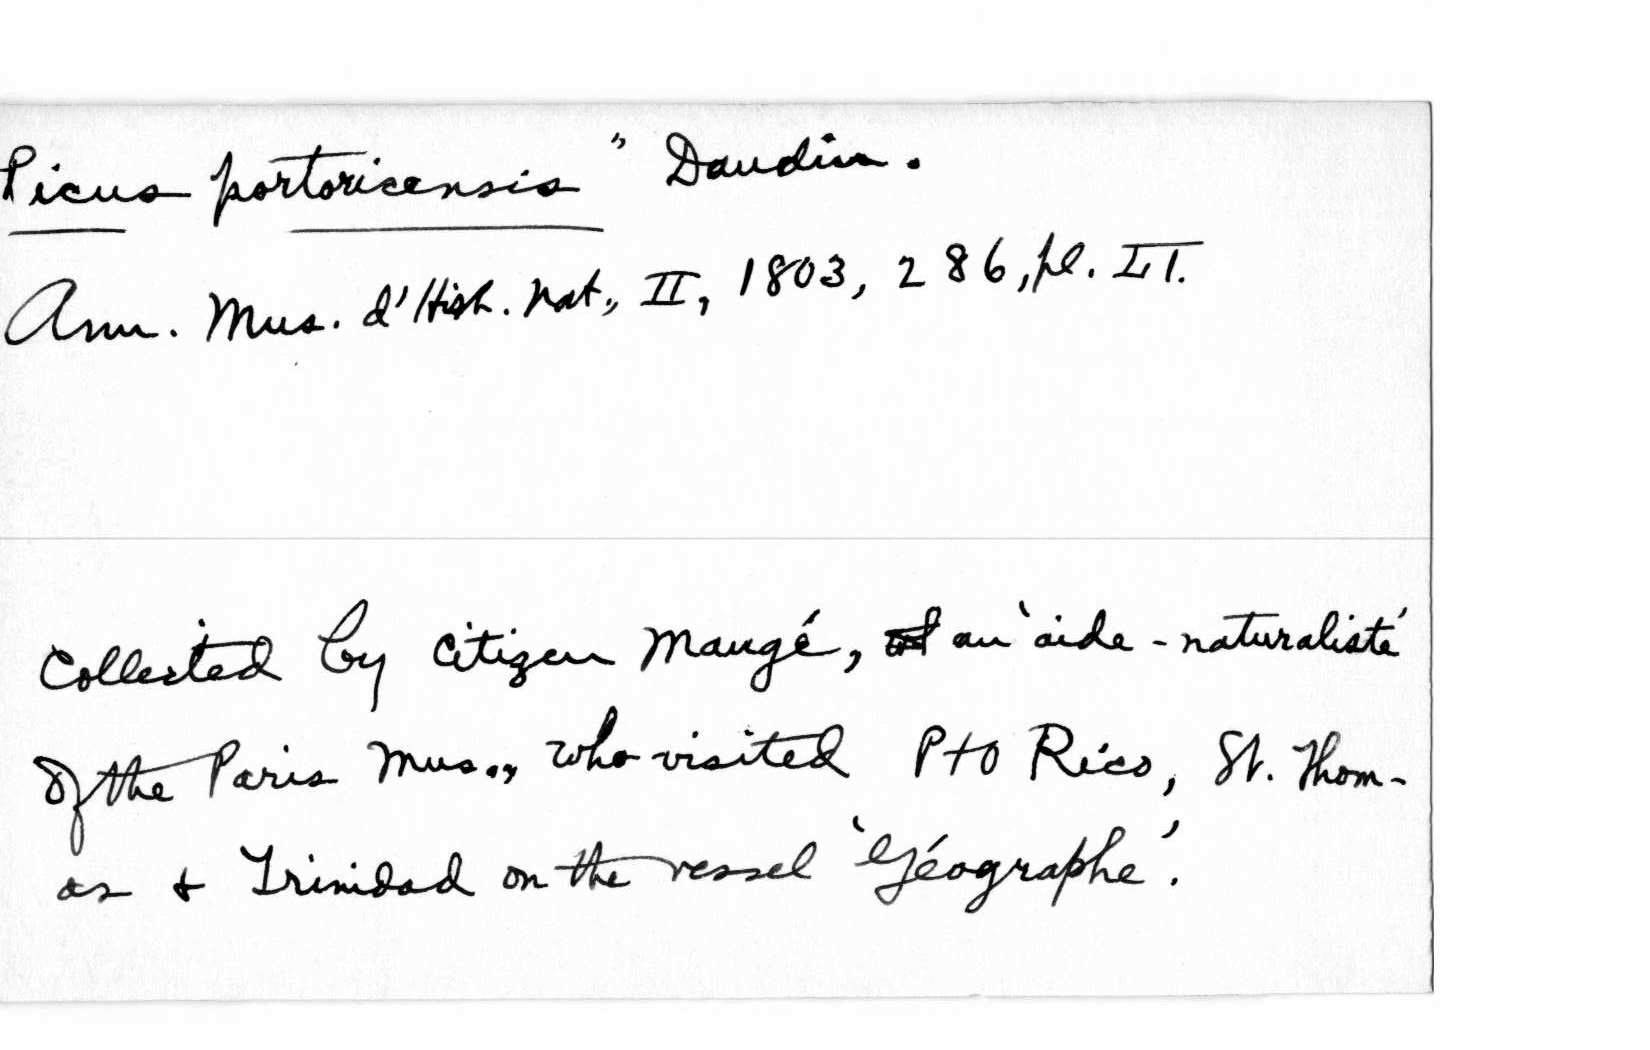 Picus portoricensis" Daudin.
Ann. Mus. d'Hist. Nat., II, 1803, 286, pl. LI.
Collected by Citizen Maugé, an 'aide-naturaliste'
of the Paris Mus., who visited Pto Rico, St. Thom-
as & Trinidad on the vessel 'Géographe'.